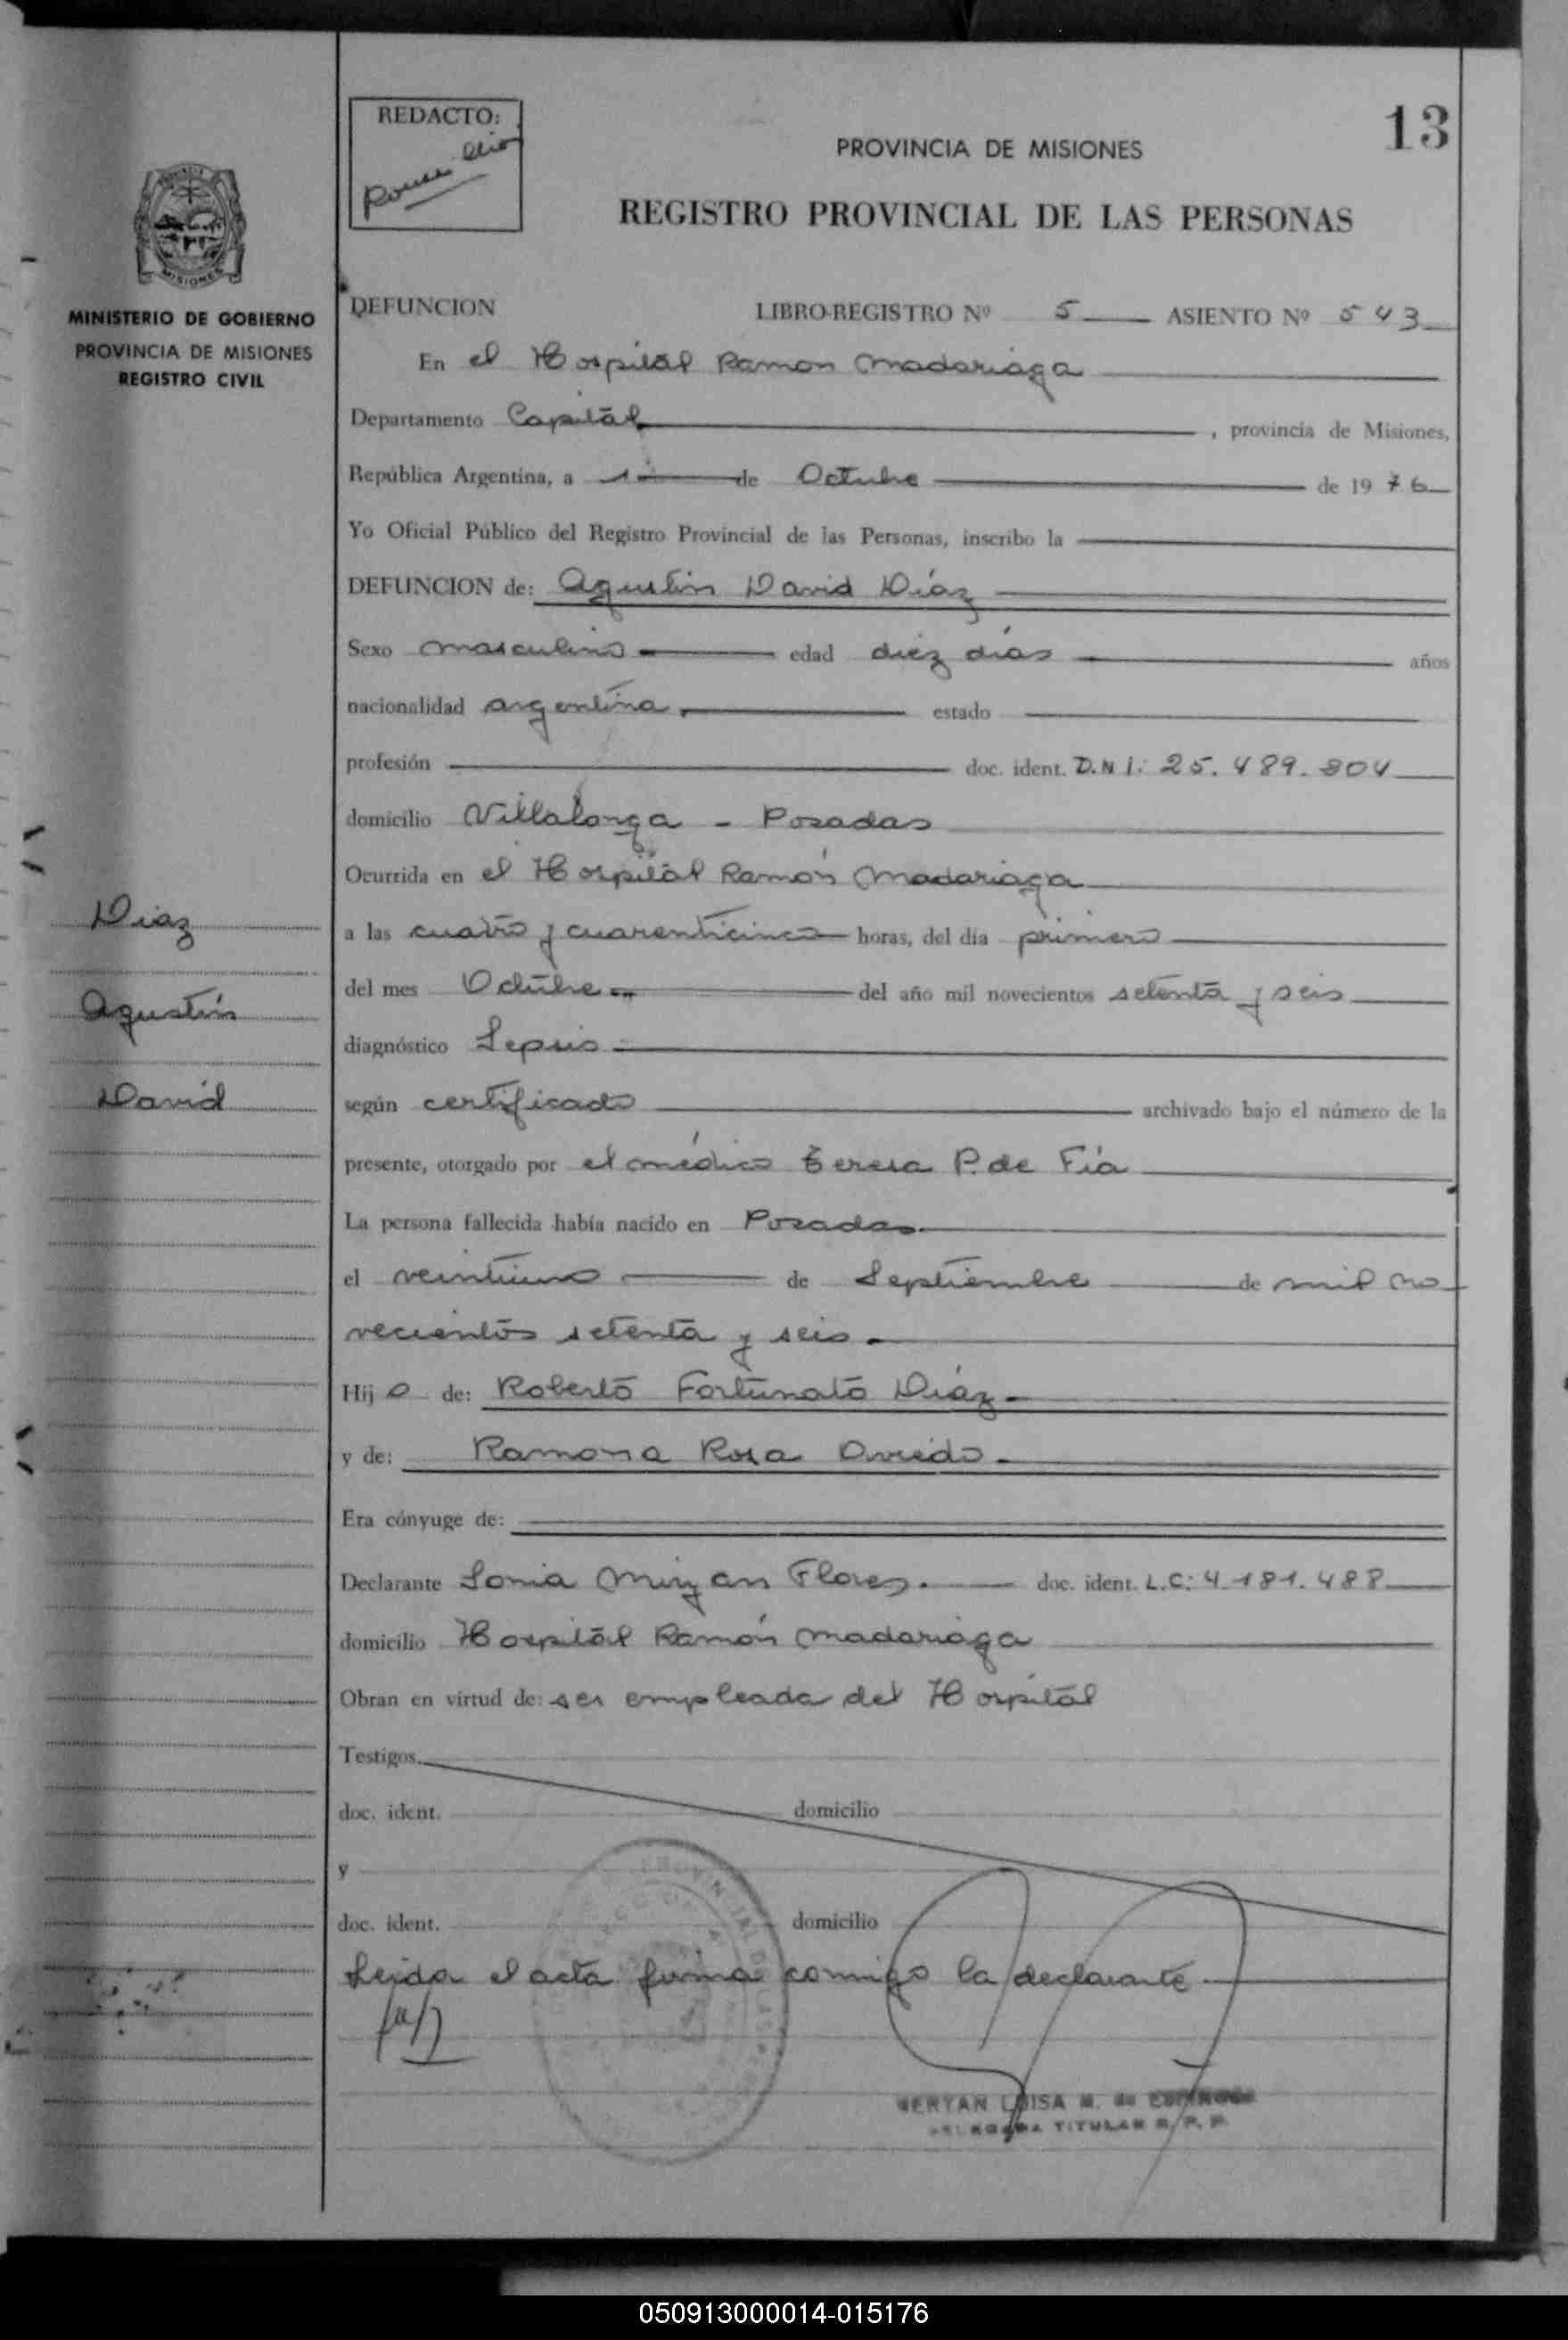 13
REDACTO:
PROVINCIA DE MISIONES
REGISTRO PROVINCIAL DE LAS PERSONAS
MISIONES
MINISTERIO DE GOBIERNO
PROVINCIA DE MISIONES
REGISTRO CIVIL
DEFUNCION LIBRO-REGISTRO Nº 5 ASIENTO Nº 543
En el Hospital Ramon Madariaga
Departamento Capital , provincia de Misiones,
República Argentina, a 1 de Octubre de 1976
Yo Oficial Público del Registro Provincial de las Personas, inscribo la
DEFUNCION de: Agustin David Díaz
Sexo masculino edad diez días años
nacionalidad argentina estado
profesión doc. ident. D.N.I: 25.489.804
domicilio Villalonga - Posadas
Ocurrida en el Hospital Ramón Madariaga
Diaz
a las cuatro y cuarenticinco horas, del día primero
del mes Octubre del año mil novecientos setenta y seis
Agustín
diagnóstico Sepsis
David
según certificado archivado bajo el número de la
presente, otorgado por el médico Teresa P. de Fía
La persona fallecida había nacido en Posadas
el veintiuno de Septiembre de mil no
vecientos setenta y seis
Hijo de: Roberto Fortunato Díaz
y de: Ramona Rosa Oviedo
Era cónyuge de:
Declarante Sonia Miryan Flores. doc. ident. L.C: 4.181.488
domicilio Hospital Ramón Madariaga
Obran en virtud de: ser empleada del Hospital
Testigos
doc. ident. domicilio
y
doc. ident. domicilio
Leida el acta firma conmigo la declarante
LUISA M. de
TITULAR R. P. P.
050913000014-015176